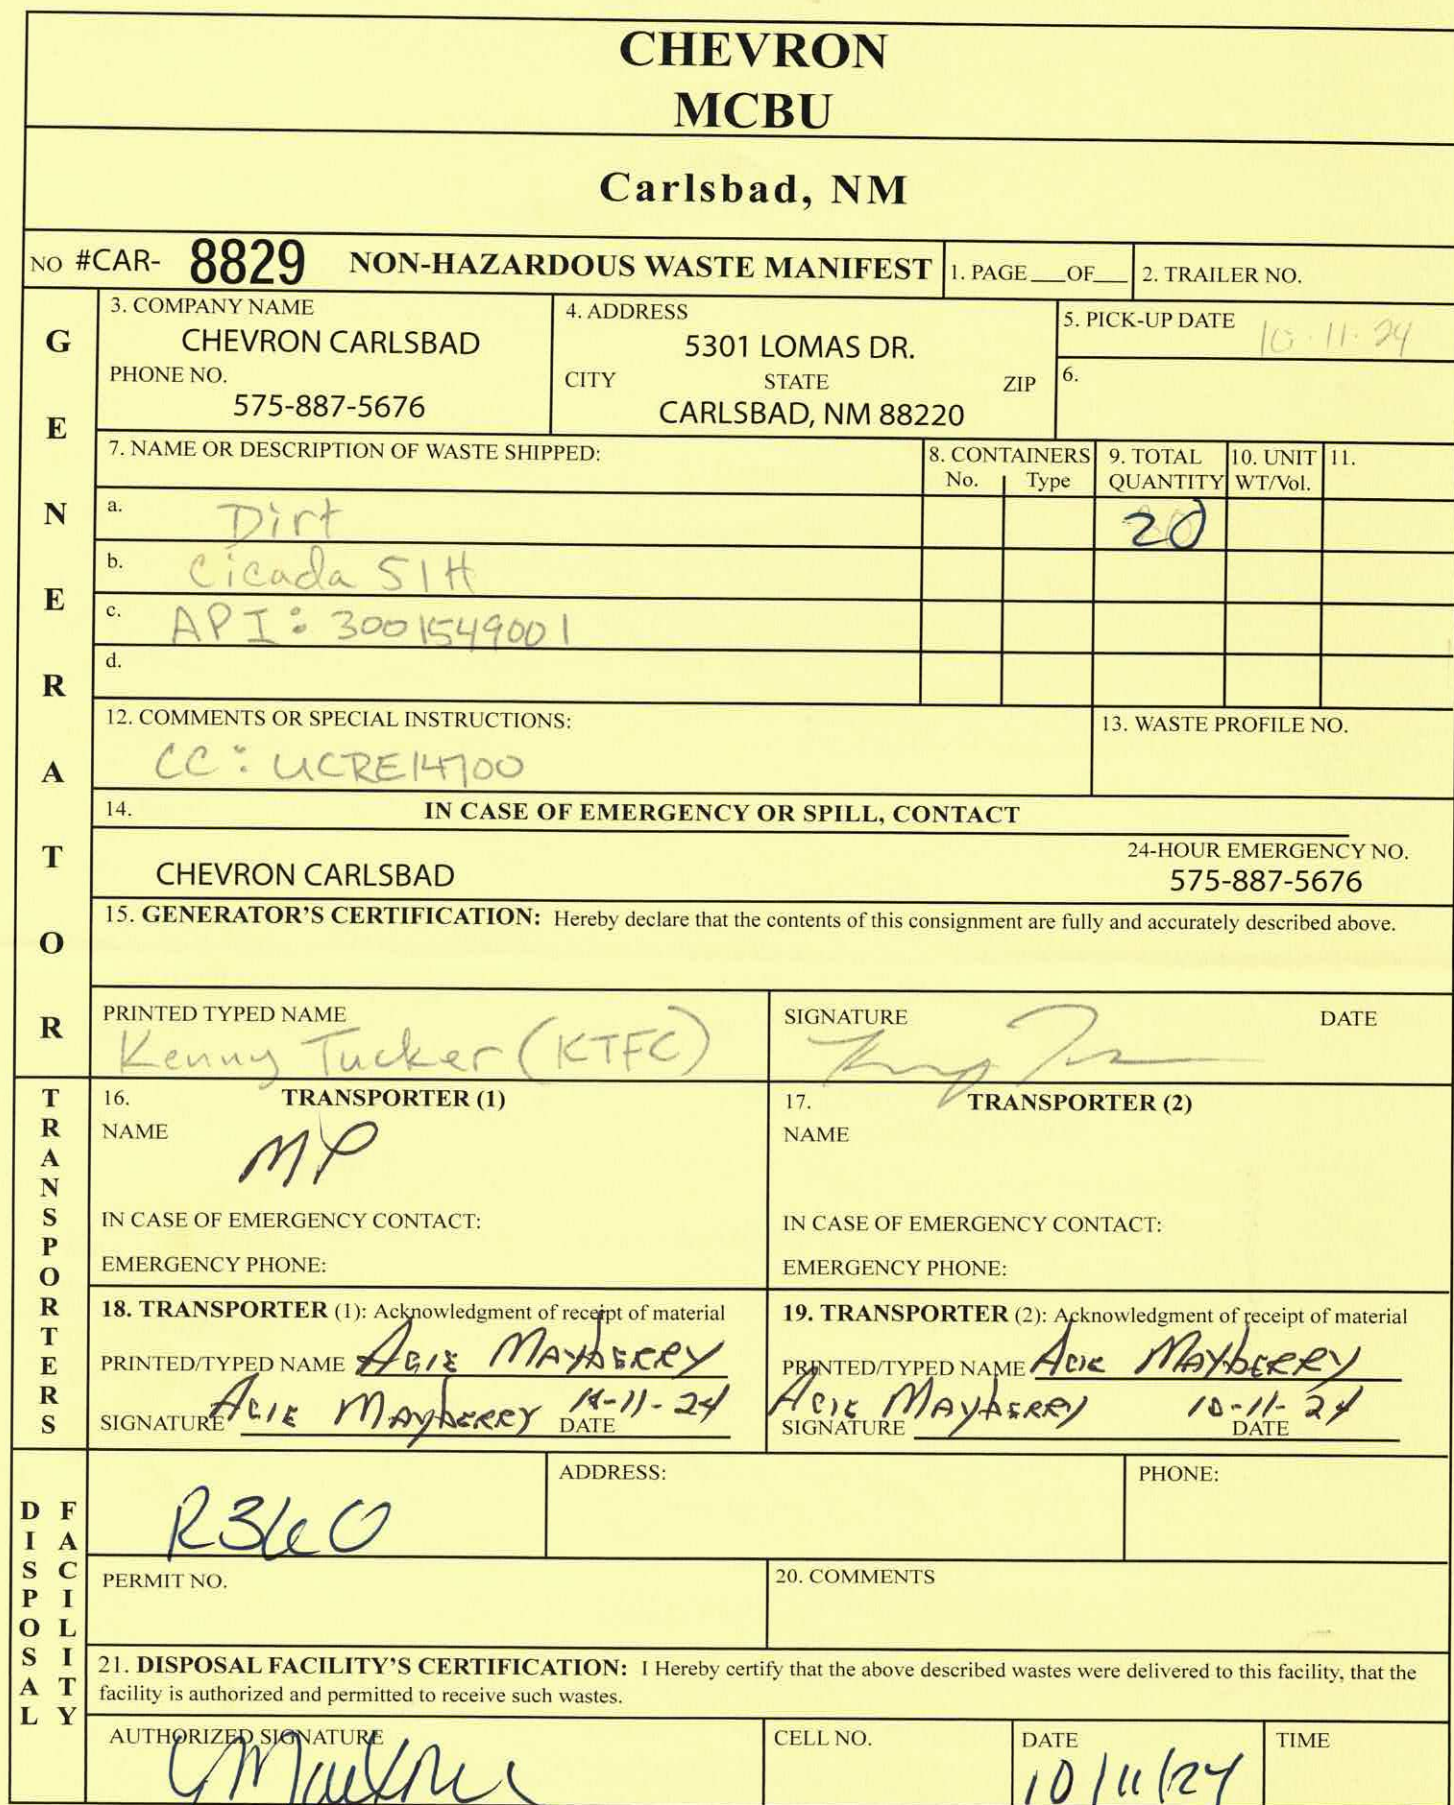 CHEVRON
MCBU
Carlsbad, NM
NO #CAR- 8829 NON-HAZARDOUS WASTE MANIFEST 1. PAGE___OF___ 2. TRAILER NO.
GENERATOR
3. COMPANY NAME
CHEVRON CARLSBAD
PHONE NO.
575-887-5676
4. ADDRESS
5301 LOMAS DR.
CITY STATE ZIP
CARLSBAD, NM 88220
5. PICK-UP DATE 10-11-24
6.
7. NAME OR DESCRIPTION OF WASTE SHIPPED:
8. CONTAINERS
No. Type
9. TOTAL
QUANTITY
10. UNIT
WT/Vol.
11.
a. Dirt 20
b. Cicada 51H
c. API: 3001549001
d.
12. COMMENTS OR SPECIAL INSTRUCTIONS:
CC: UCRE14700
13. WASTE PROFILE NO.
14. IN CASE OF EMERGENCY OR SPILL, CONTACT
CHEVRON CARLSBAD
24-HOUR EMERGENCY NO.
575-887-5676
15. GENERATOR'S CERTIFICATION: Hereby declare that the contents of this consignment are fully and accurately described above.
PRINTED TYPED NAME
Kenny Tucker (KTFC)
SIGNATURE DATE
TRANSPORTERS
16. TRANSPORTER (1)
NAME
MP
IN CASE OF EMERGENCY CONTACT:
EMERGENCY PHONE:
17. TRANSPORTER (2)
NAME
IN CASE OF EMERGENCY CONTACT:
EMERGENCY PHONE:
18. TRANSPORTER (1): Acknowledgment of receipt of material
PRINTED/TYPED NAME Acie Mayberry
SIGNATURE Acie Mayberry DATE 10-11-24
19. TRANSPORTER (2): Acknowledgment of receipt of material
PRINTED/TYPED NAME Acie Mayberry
SIGNATURE Acie Mayberry DATE 10-11-24
DISPOSAL FACILITY
R360
ADDRESS:
PHONE:
PERMIT NO.
20. COMMENTS
21. DISPOSAL FACILITY'S CERTIFICATION: I Hereby certify that the above described wastes were delivered to this facility, that the
facility is authorized and permitted to receive such wastes.
AUTHORIZED SIGNATURE
CELL NO.
DATE
10/11/24
TIME